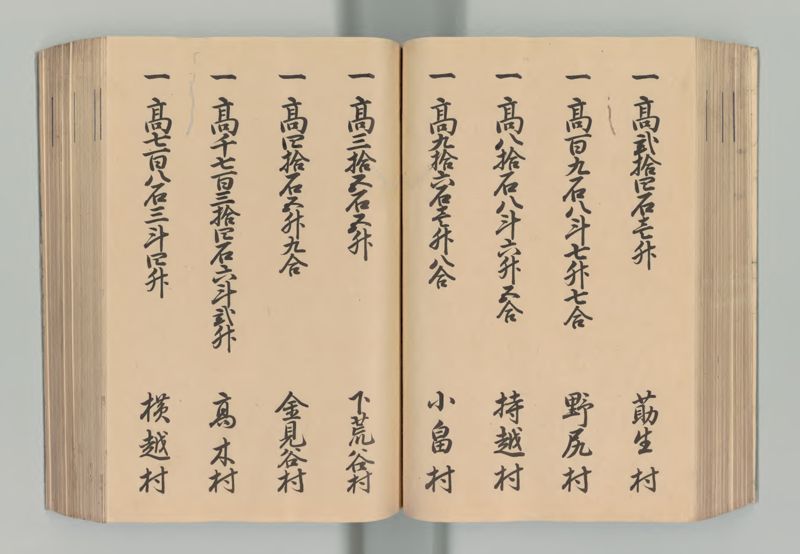 一 高弐拾四石壱升 莇生村
一 高百九石八斗七升七合 野尻村
一 高八拾石八斗六升五合 持越村
一 高九拾六石壱升八合 小畠村
一 高三拾五石五升 下荒谷村
一 高四拾石五升九合 金見谷村
一 高千七百三拾四石六斗弐升 高木村
一 高七百八石三斗四升 横越村